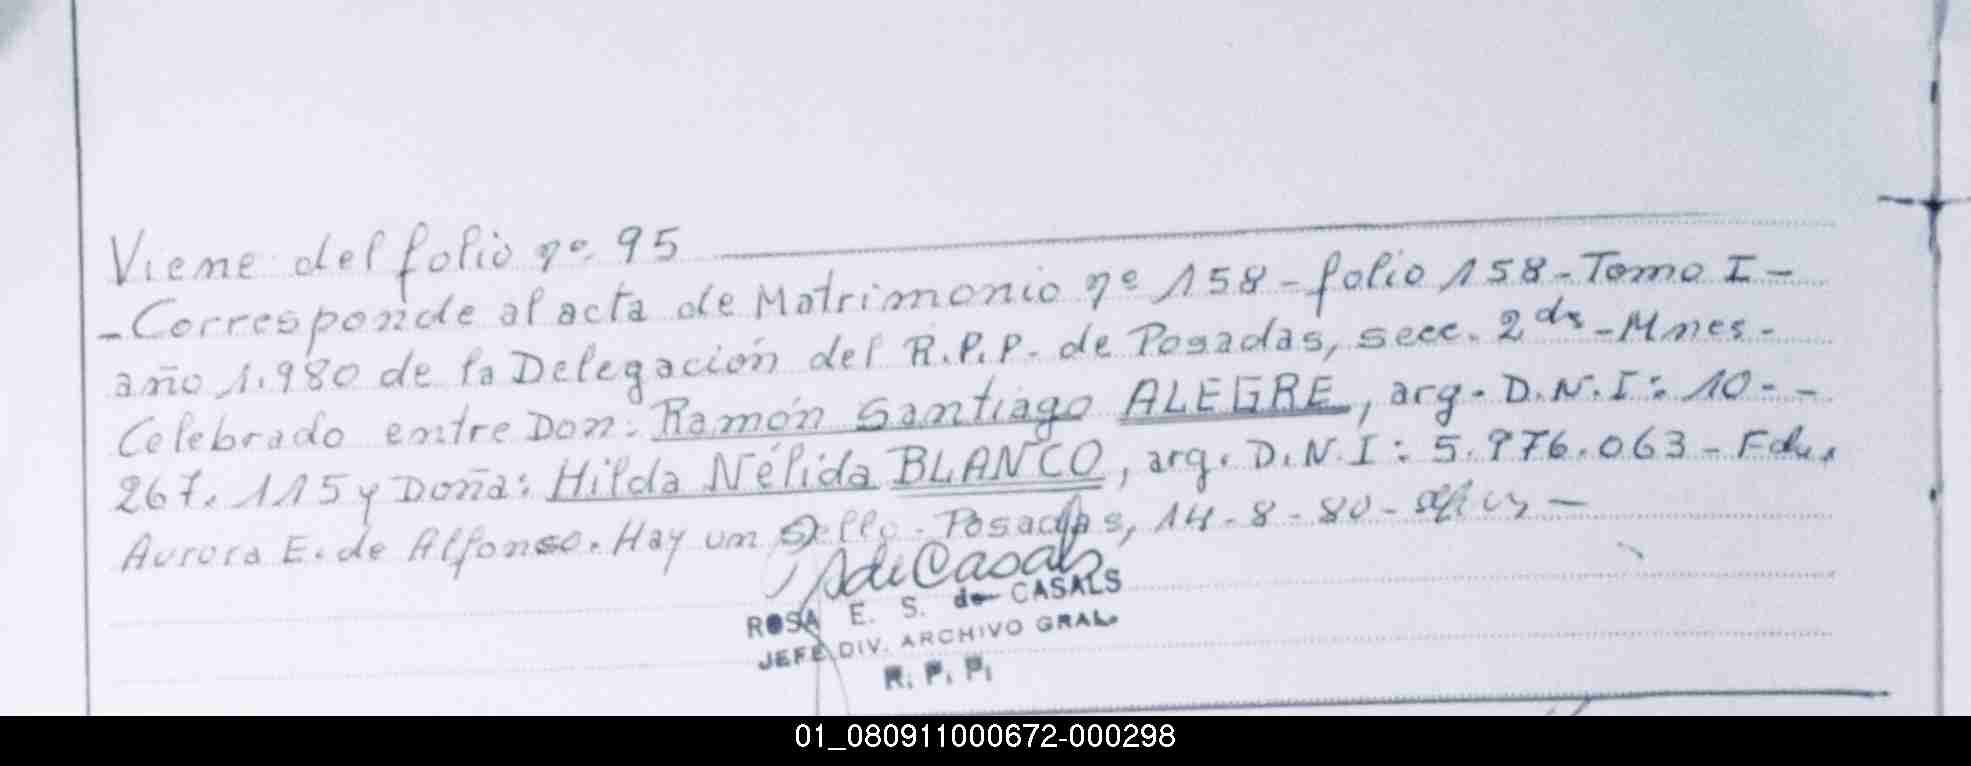 Viene del folio nº. 95
- Corresponde al acta de Matrimonio nº 158 - folio 158 - Tomo I -
año 1.980 de la Delegación del R.P.P. de Posadas, secc. 2da - Mnes -
Celebrado entre Don: Ramón Santiago ALEGRE, arg. D.N.I: 10 - -
267.115 y Doña: Hilda Nélida BLANCO, arg. D.N.I: 5.976.063 - Fdo.
Aurora E. de Alfonso. Hay un Sello. Posadas, 14-8-80 -
SdeCasals
ROSA E. S. de CASALS
JEFE DIV. ARCHIVO GRAL.
R. P. P.
01_080911000672-000298